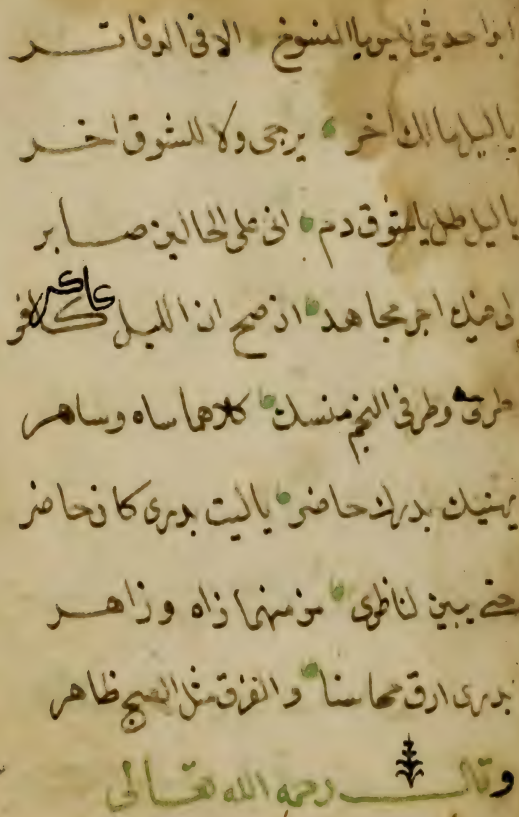 ابدا حديثي ليس بالمنسوخ الا في الدفاتر
ياليل مالك اخر يرجى ولا للشوق اخر
ياليل طل ياشوق دم اني على الحالين صابر
لي فيك اجر مجاهد ان صح ان الليل كافر
طرفي وطرف النجم منك كلاهما ساه وساهر
يهنيك بدرك حاضر ياليت بدري كان حاضر
حتى يبين لناظري من منهما زاه وزاهر
بدري ارق محاسنا والفرق مثل الصبح ظاهر
وقال رحمه الله تعالى